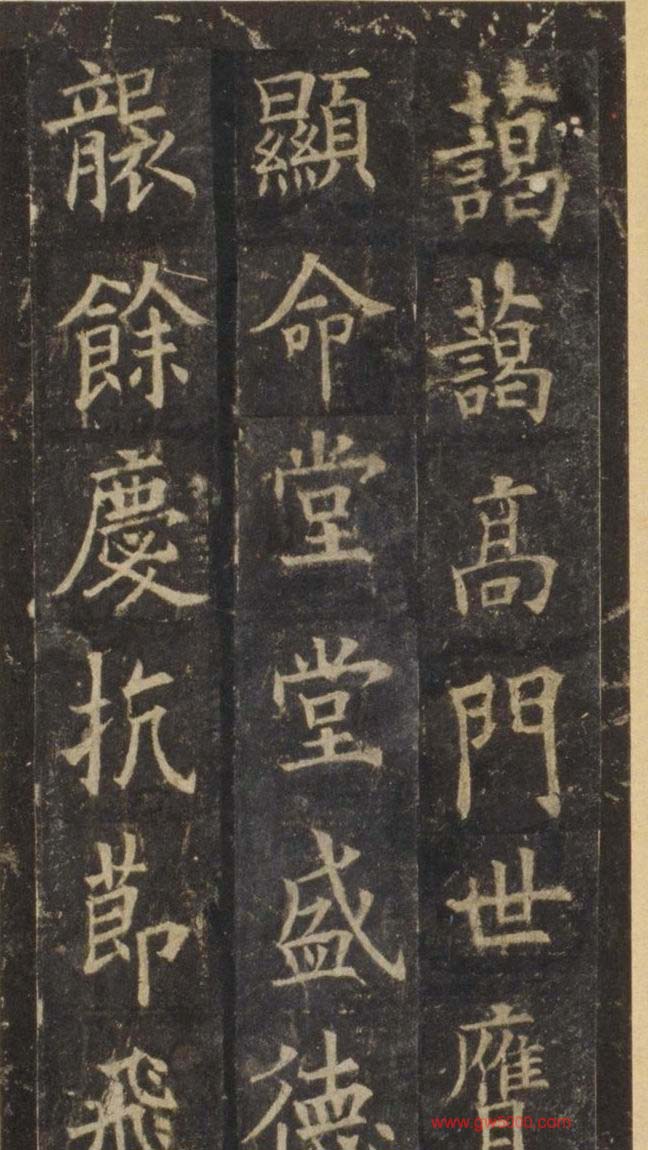 藹藹高門世膺
顯命堂堂盛德
襲餘慶抗節飛